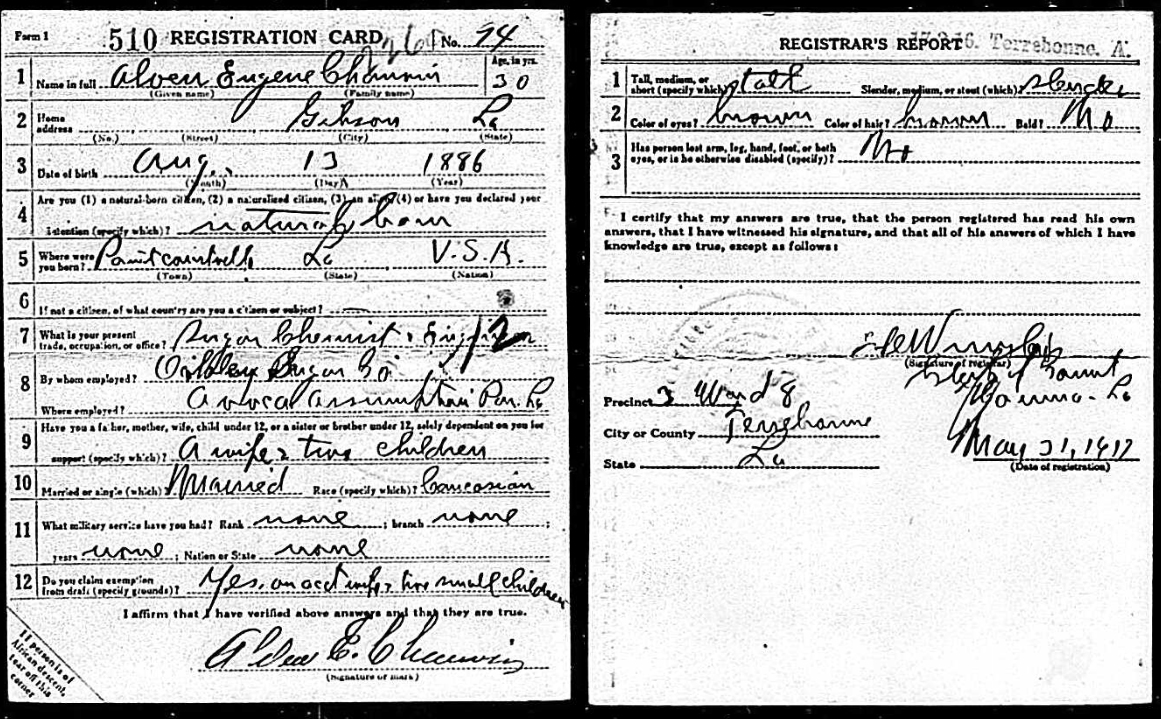 Form 1 510 REGISTRATION CARD No. 94
1 Name in full Alven Eugene Chauvin Age, in yrs. 30
(Given name) (Family name)
2 Home address Gibson La
(No.) (Street) (City) (State)
3 Date of birth Aug. 13 1886
(Month) (Day) (Year)
4 Are you (1) a natural-born citizen, (2) a naturalized citizen, (3) an alien, (4) or have you declared your
intention (specify which)? natural born
5 Where were you born? La U.S.A.
(Town) (State) (Nation)
6 If not a citizen, of what country are you a citizen or subject?
7 What is your present trade, occupation, or office? Sugar Chemist & 12
8 By whom employed? Sugar Co
Where employed? Avoca Assumption Par. La
9 Have you a father, mother, wife, child under 12, or a sister or brother under 12, solely dependent on you for
support (specify which)? A wife & two children
10 Married or single (which)? Married Race (specify which)? Caucasian
11 What military service have you had? Rank none ; branch none ;
years none ; Nation or State none
12 Do you claim exemption from draft (specify grounds)? Yes, on acct wife & two small children
I affirm that I have verified above answers and that they are true.
Alven E. Chauvin
(Signature or mark)
If person is of
African descent,
tear off this
corner
REGISTRAR'S REPORT Terrebonne. A.
1 Tall, medium, or short (specify which)? tall Slender, medium, or stout (which)? slender
2 Color of eyes? brown Color of hair? brown Bald? No
3 Has person lost arm, leg, hand, foot, or both eyes, or is he otherwise disabled (specify)? No
I certify that my answers are true, that the person registered has read his own
answers, that I have witnessed his signature, and that all of his answers of which I have
knowledge are true, except as follows:
(Signature of registrar)
Precinct 3 Ward 8 Houma. La
City or County Terrebonne
State La May 31, 1917
(Date of registration)